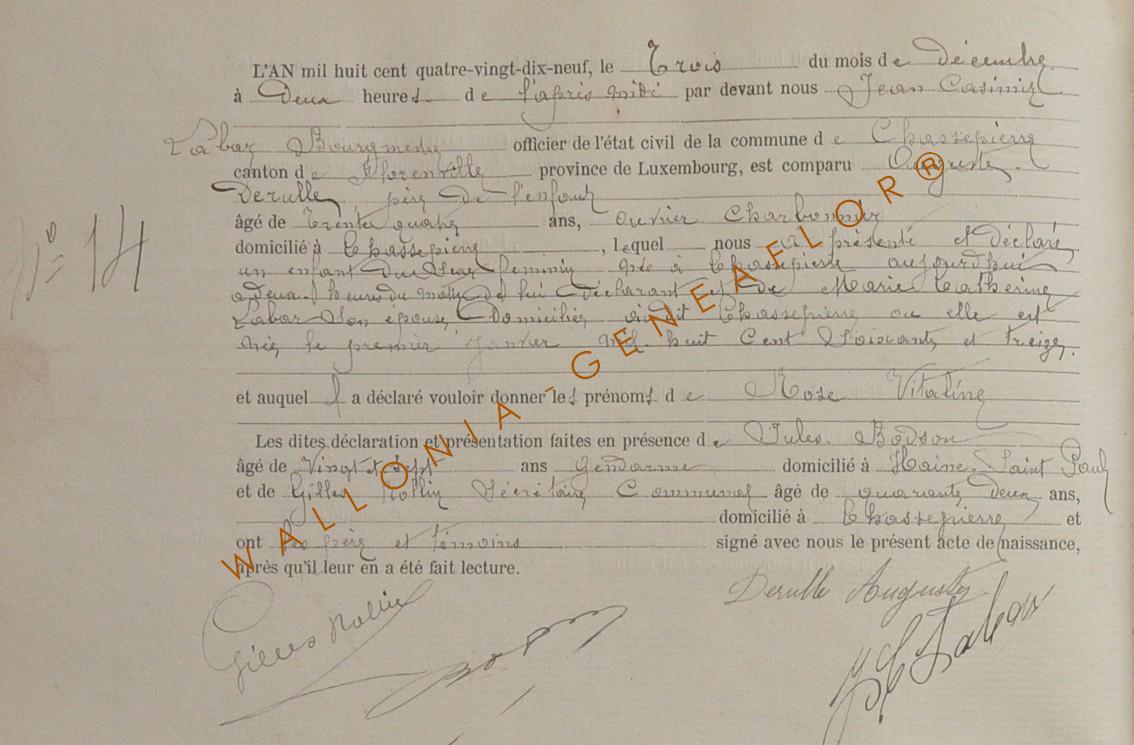 L'AN mil huit cent quatre-vingt-dix-neuf, le Trois du mois de Décembre
à Deux heures de l'après midi par devant nous Jean Casimir
Labar Bourgmestre officier de l'état civil de la commune de Chassepierre
canton de Florenville province de Luxembourg, est comparu Auguste
Derulle, père de l'enfant
âgé de Trente quatre ans, ouvrier Charbonnier
domicilié à Chassepierre, lequel nous a présenté et déclaré
un enfant du Sexe féminin née à Chassepierre aujourd'hui
a deux heures du matin de lui Déclarant et de Marie Catherine
Labar Son épouse, Domiciliée audit Chassepierre ou elle est
née le premier Janvier mil huit Cent Soixante et treize.
N° 14
et auquel il a déclaré vouloir donner les prénoms de Rose Vitaline
Les dites déclaration et présentation faites en présence de Jules Bodson
âgé de Vingt et Sept ans Gendarme domicilié à Haine Saint Paul
et de Gilles Rollin Secrétaire Communal âgé de quarante deux ans,
domicilié à Chassepierre et
ont les père et témoins signé avec nous le présent acte de naissance,
après qu'il leur en a été fait lecture.
Derulle Auguste
Gilles Rollin
JC Labar
WALLONIA-GENEAFLOR®